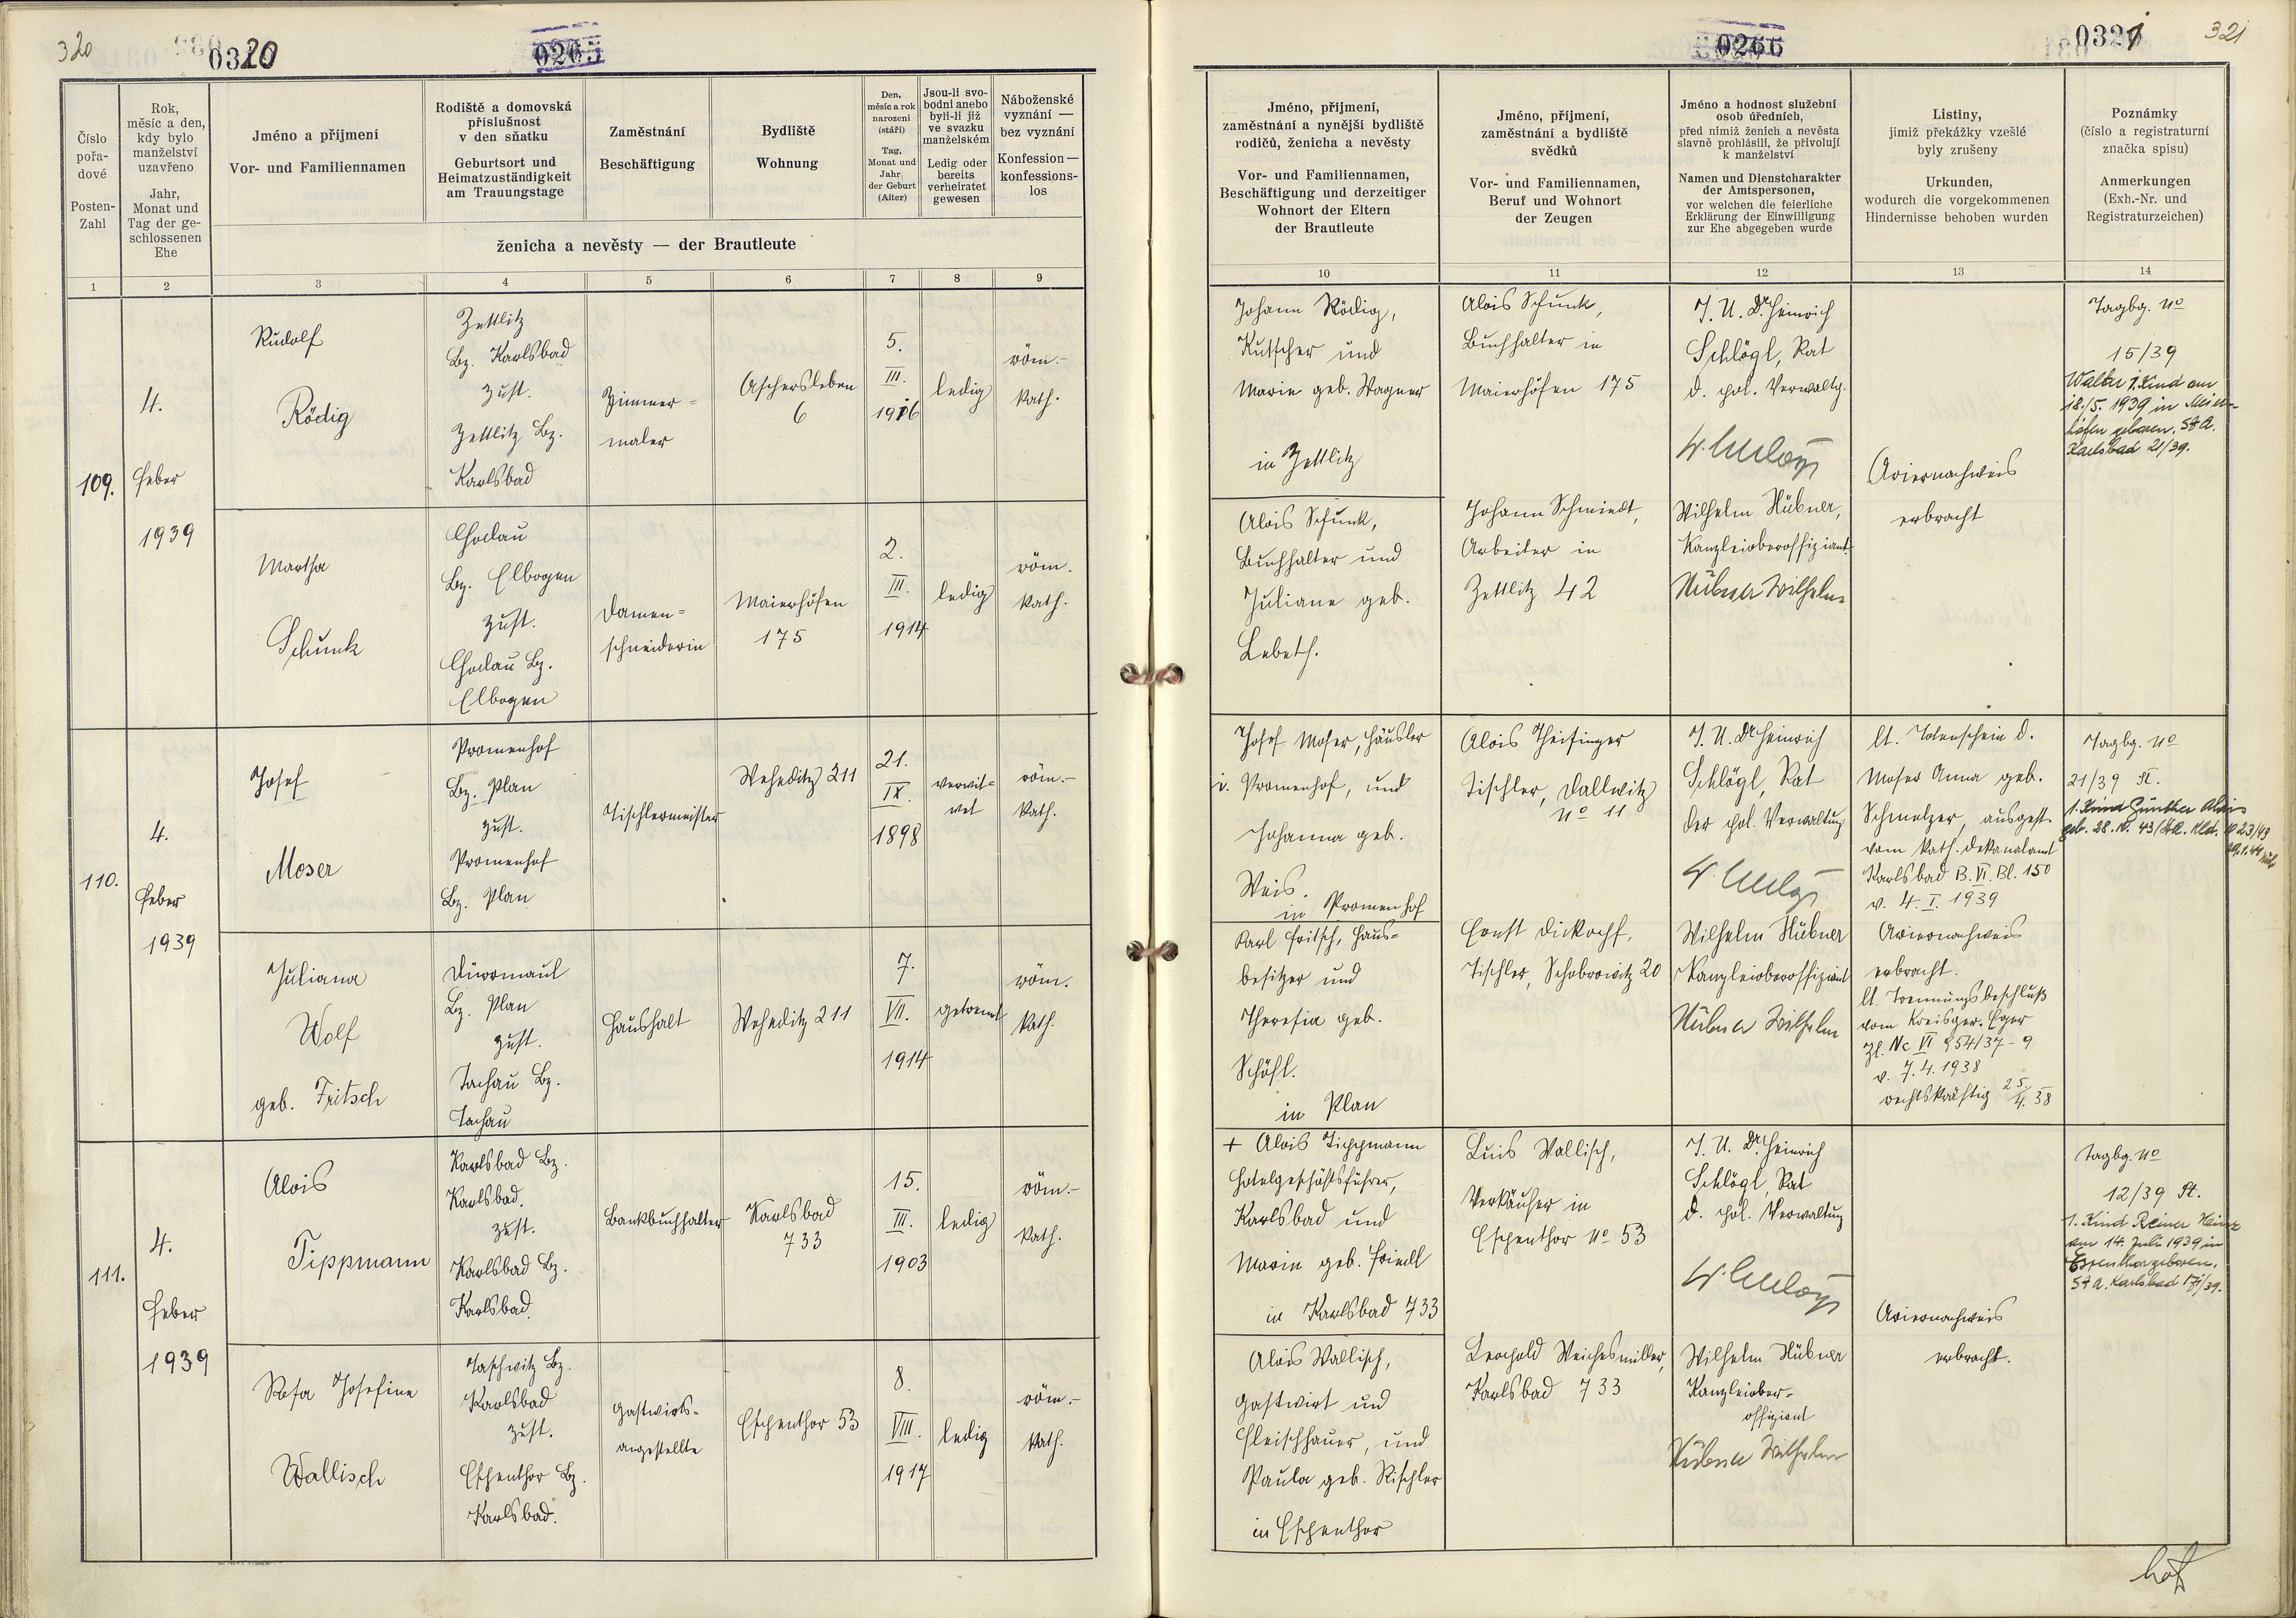 320
0320
0265
Číslo pořa- dové
Posten- Zahl
Rok, měsíc a den, kdy bylo manželství uzavřeno
Jahr, Monat und Tag der ge- schlossenen Ehe
Jméno a příjmení
Vor- und Familiennamen
Rodiště a domovská příslušnost v den sňatku
Geburtsort und Heimatzuständigkeit am Trauungstage
Zaměstnání
Beschäftigung
Bydliště
Wohnung
Den, měsíc a rok narození (stáří)
Tag, Monat und Jahr der Geburt (Alter)
Jsou-li svo- bodni anebo byli-li již ve svazku manželském
Ledig oder bereits verheiratet gewesen
Náboženské vyznání — bez vyznání
Konfession — konfessions- los
ženicha a nevěsty — der Brautleute
1 2 3 4 5 6 7 8 9
109.
4.
Feber
1939
Rudolf
Rödig
Zettlitz
Bz. Karlsbad
zust.
Zettlitz Bz.
Karlsbad
Zimmer=
maler
Aschersleben
6
5.
III.
1916
ledig
röm.-
kath.
Martha
Schunk
Chodau
Bz. Elbogen
zust.
Chodau Bz.
Elbogen
Damen=
schneiderin
Maierhöfen
175
2.
III.
1914
ledig
röm.
kath.
110.
4.
Feber
1939
Josef
Moser
Promenhof
Bz. Plan
zust.
Promenhof
Bz. Plan
Tischlermeister
Weheditz 211
21.
IX.
1898
verwit=
wet
röm.-
kath.
Juliana
Wolf
geb. Fritsch
Dürrmaul
Bz. Plan
zust.
Tachau Bz.
Tachau
Haushalt
Weheditz 211
7.
VII.
1914
getrennt
röm.
kath.
111.
4.
Feber
1939
Alois
Tippmann
Karlsbad Bz.
Karlsbad.
zust.
Karlsbad Bz.
Karlsbad.
Bankbuchhalter
Karlsbad
733
15.
III.
1903
ledig
röm.-
kath.
Rosa Josefine
Wallisch
Taschwitz Bz.
Karlsbad
zust.
Espenthor Bz.
Karlsbad.
Gastwirts-
angestellte
Espenthor 53
8.
VIII.
1917
ledig
röm.-
kath.
0266
0321
321
Jméno, příjmení, zaměstnání a nynější bydliště rodičů, ženicha a nevěsty
Vor- und Familiennamen, Beschäftigung und derzeitiger Wohnort der Eltern der Brautleute
Jméno, příjmení, zaměstnání a bydliště svědků
Vor- und Familiennamen, Beruf und Wohnort der Zeugen
Jméno a hodnost služební osob úředních, před nimiž ženich a nevěsta slavně prohlásili, že přivolují k manželství
Namen und Dienstcharakter der Amtspersonen, vor welchen die feierliche Erklärung der Einwilligung zur Ehe abgegeben wurde
Listiny, jimiž překážky vzešlé byly zrušeny
Urkunden, wodurch die vorgekommenen Hindernisse behoben wurden
Poznámky (číslo a registraturní značka spisu)
Anmerkungen (Exh.-Nr. und Registraturzeichen)
10 11 12 13 14
Johann Rödig,
Kutscher und
Marie geb. Wagner
in Zettlitz
Alois Schunk,
Buchhalter in
Maierhöfen 175
J. U. Dr Heinrich
Schlögl, Rat
d. pol. Verwaltg.
Tagbg. No
15/39
Walter 1. Kind am
18./5. 1939 in Meier-
höfen geboren. St A.
Karlsbad 21/39.
Alois Schunk,
Buchhalter und
Juliane geb.
Lebeth.
Johann Schmiedt,
Arbeiter in
Zettlitz 42
Wilhelm Hübner,
Kanzleioberoffiziant
Hübner Wilhelm
Ariernachweis
erbracht
Josef Moser, Häusler
i. Promenhof, und
Johanna geb.
Weis.
in Promenhof
Alois Theisinger
Tischler, Dallwitz
No 11
J. U. Dr Heinrich
Schlögl, Rat
der pol. Verwaltung
lt. Totenschein d.
Moser Anna geb.
Schmelzer, ausgest.
vom kath. Dekanalamt
Karlsbad B. VI. Bl. 150
v. 4. I. 1939
Tagbg. No
21/39 St.
1. Kind Günther Alois
geb. 28. IV. 43
Karl Fritsch, Haus=
besitzer und
Theresia geb.
Schöfl.
in Plan
Ernst Dickopf,
Tischler, Schobrowitz 20
Wilhelm Hübner
Kanzleioberoffiziant
Hübner Wilhelm
Ariernachweis
erbracht.
lt. Trennungsbeschluß
vom Kreisger. Eger
Zl. Nc VI 854/37-9
v. 7.4.1938
rechtskräftig 25./4. 38
+ Alois Tippmann
Hotelgeschäftsführer,
Karlsbad und
Marie geb. Friedl
in Karlsbad 733
Luis Wallisch,
Verkäufer in
Espenthor No 53
J. U. Dr Heinrich
Schlögl, Rat
d. pol. Verwaltung
Tagbg. No
12/39 St.
1. Kind Reiner Heinz
am 14. Juli 1939 in
Espenthor geboren.
St A. Karlsbad 171/39.
Alois Wallisch,
Gastwirt und
Fleischhauer, und
Paula geb. Rischler
in Espenthor
Leopold Weichesmiller,
Karlsbad 733
Wilhelm Hübner
Kanzleiober-
offiziant
Hübner Wilhelm
Ariernachweis
erbracht.